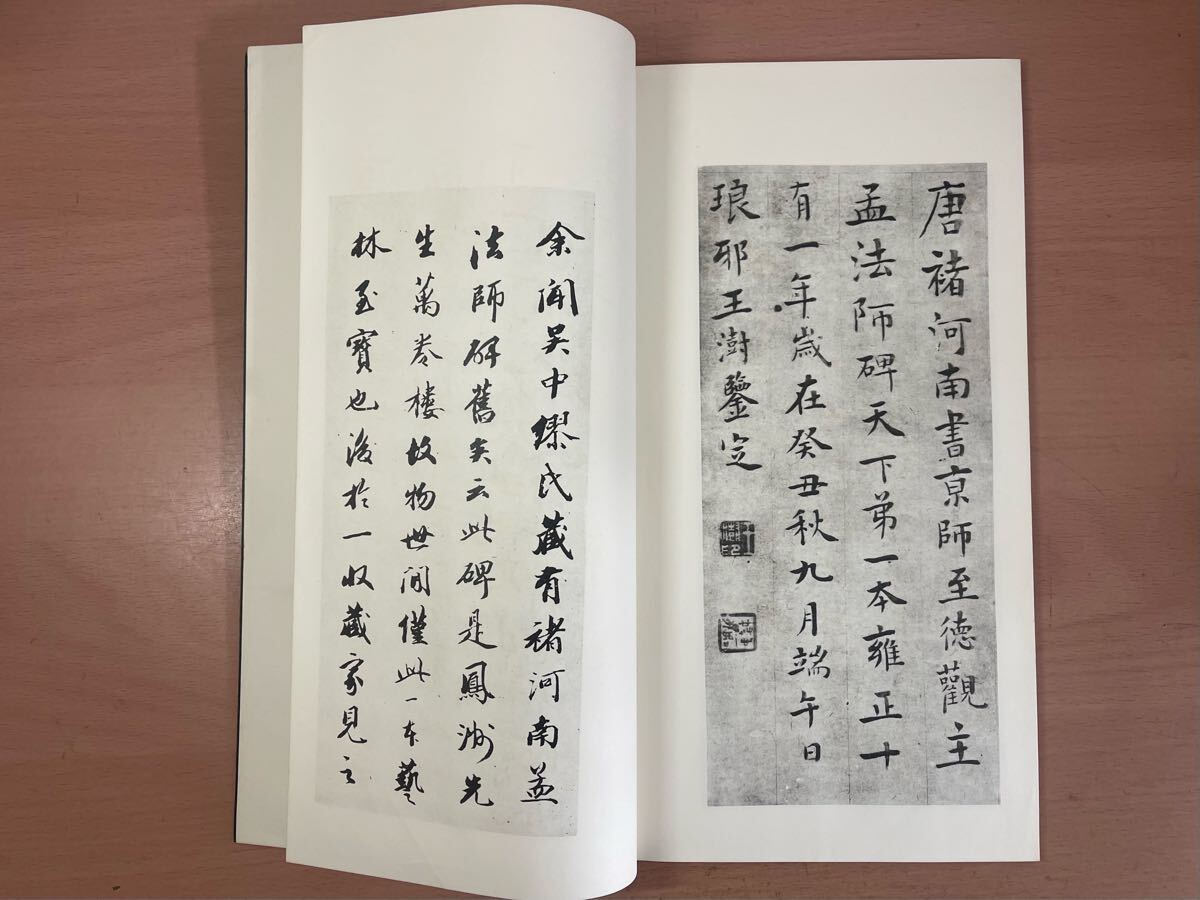 唐褚河南書京師至德觀主
孟法師碑天下弟一本雍正十
有一年歲在癸丑秋九月端午日
琅耶王澍鑒定
余聞吳中繆氏藏有褚河南孟
法師碑舊矣云此碑是鳳洲先
生萬卷樓故物世間僅此一本藝
林至寶也後於一收藏家見之